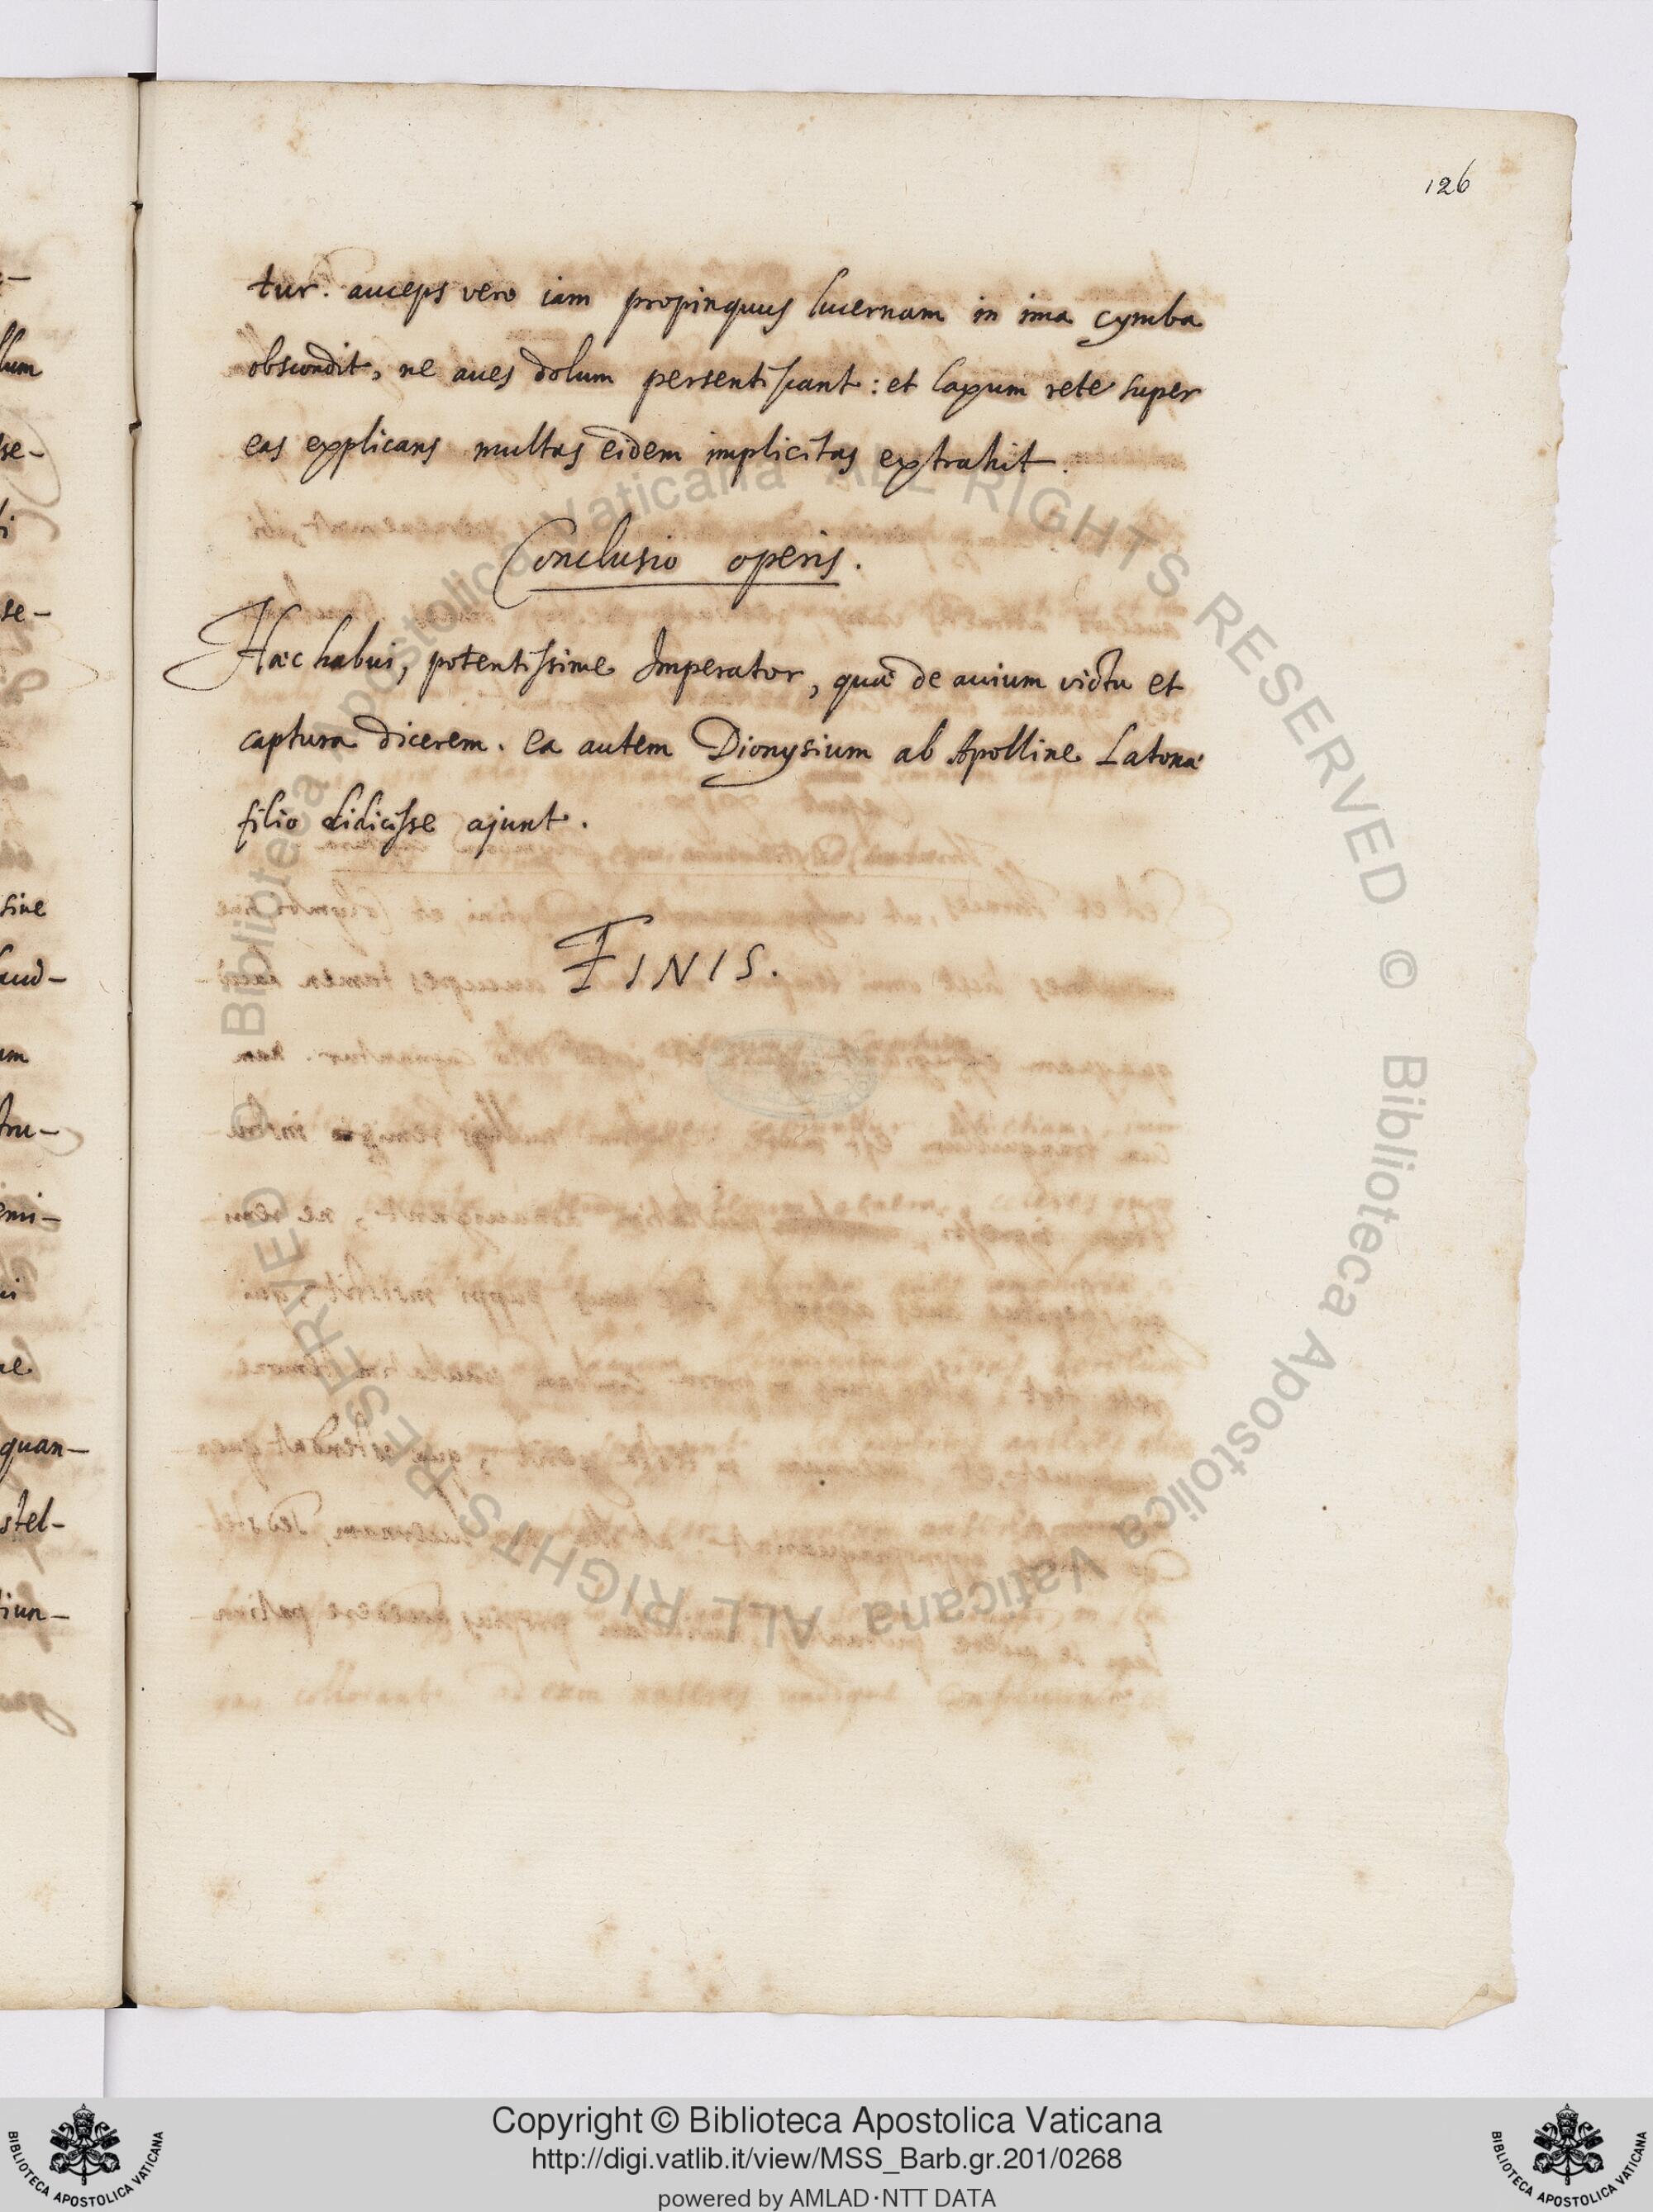 126
tur. auceps vero iam propinquus lucernam in ima cymba
abscondit, ne aues dolum persentiscant: et laxum rete super
eas explicans multas eidem implicitas extrahit.
Conclusio operis.
Hæc habui, potentissime Imperator, quæ de auium victu et
captura dicerem. ea autem Dionysium ab Apolline Latonæ
filio didicisse ajunt.
FINIS.
llum
se-
se-
sine
quan-
stel-
iun-
© Biblioteca Apostolica Vaticana ALL RIGHTS RESERVED © Biblioteca Apostolica Vaticana ALL RIGHTS RESERVED
Copyright © Biblioteca Apostolica Vaticana
http://digi.vatlib.it/view/MSS_Barb.gr.201/0268
powered by AMLAD·NTT DATA
BIBLIOTECA APOSTOLICA VATICANA
BIBLIOTECA APOSTOLICA VATICANA